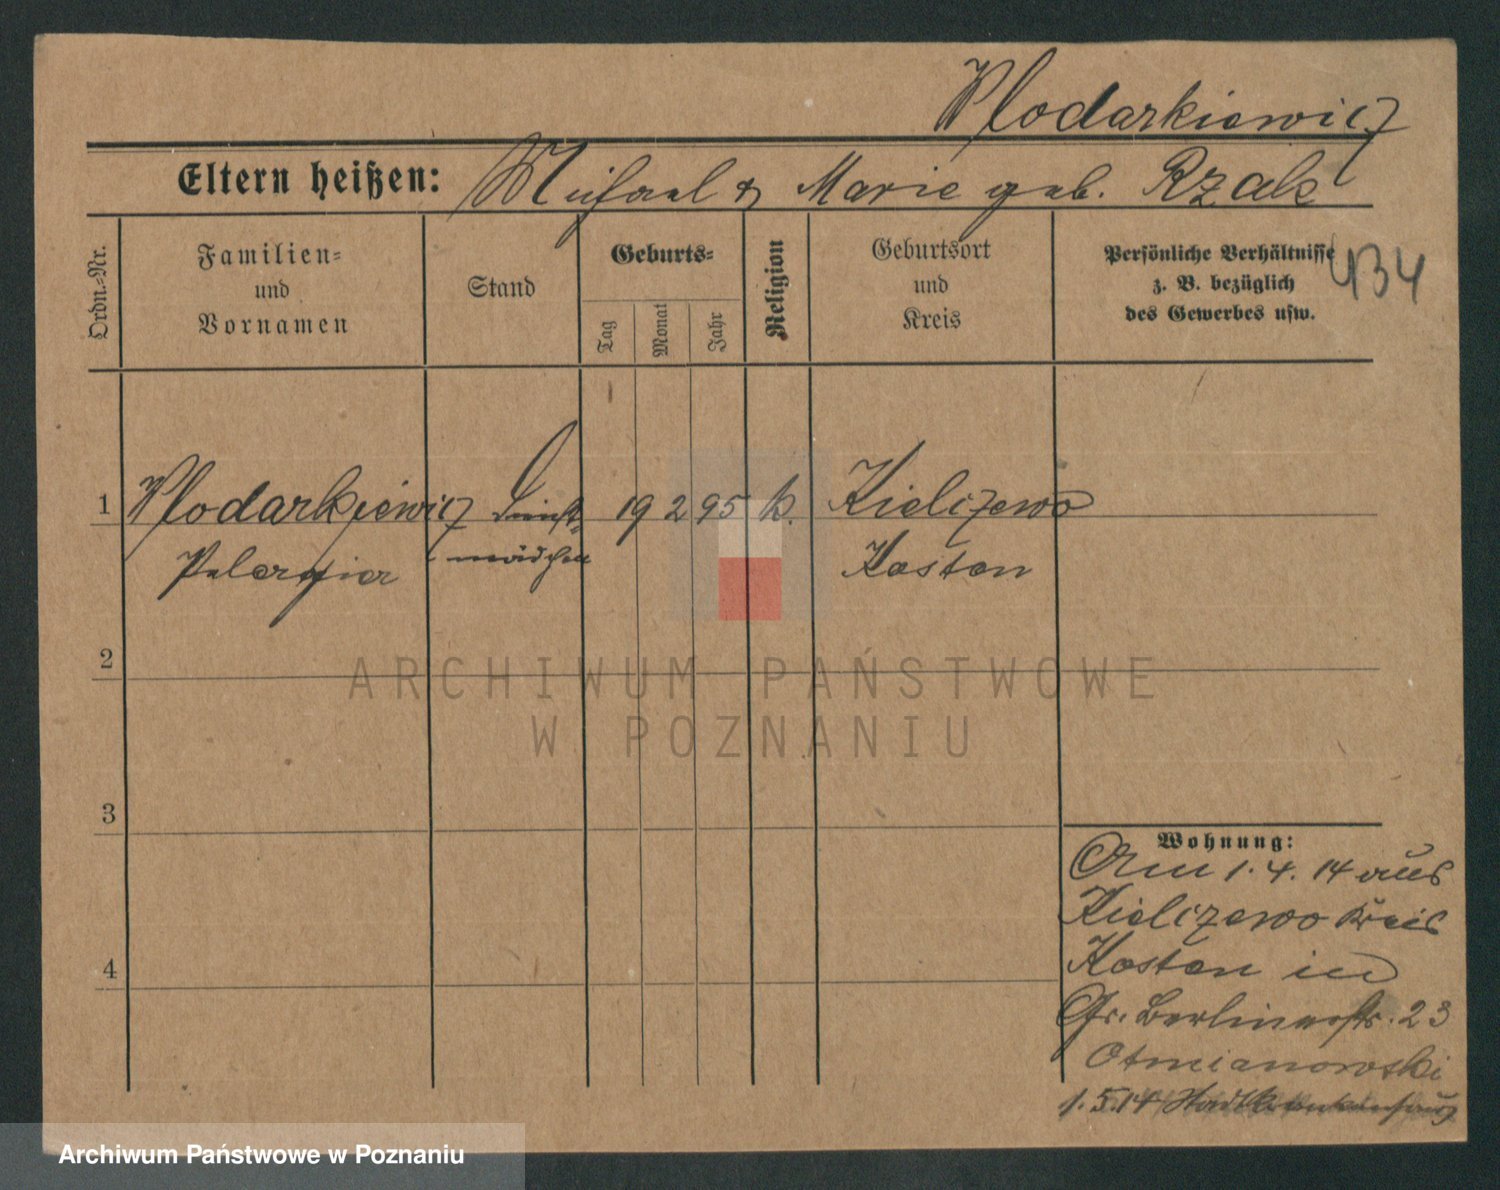 Wlodarkiewicz
Eltern heißen: Michael & Marie geb. Rzak
Ordn.-Nr.
Familien-
und
Vornamen
Stand
Geburts-
Tag
Monat
Jahr
Religion
Geburtsort
und
Kreis
Persönliche Verhältnisse
z. B. bezüglich
des Gewerbes usw.
434
1 Wlodarkiewicz Dienst- 19 2 95 k. Kielczewo
Pelagia mädchen Kosten
2
ARCHIWUM PAŃSTWOWE
W POZNANIU
3
4
Wohnung:
Am 1. 4. 14 aus
Kielczewo Kreis
Kosten in
Gr. Berlinerstr. 23
Otmianowski
1.5.14 Stadtkrankenhaus
Archiwum Państwowe w Poznaniu